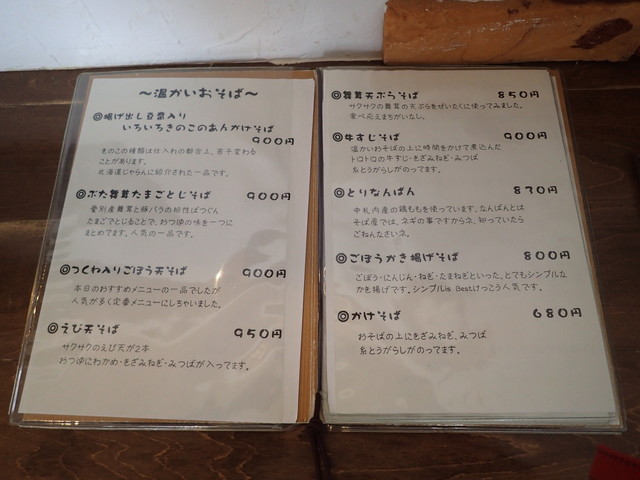 ～温かいおそば～
◎揚げ出し豆腐入り
いろいろきのこのあんかけそば
900円
きのこの種類は仕入れの都合上、若干変わる
ことがあります。
北海道じゃらんに紹介された一品です。
◎ぶた舞茸たまごとじそば 900円
愛別産舞茸と豚バラの相性ばつぐん
たまごでとじることで、おつゆの味を一つに
まとめてます。人気の一品です。
◎つくね入りごぼう天そば 900円
本日のおすすめメニューの一品でしたが
人気が多く定番メニューにしちゃいました。
◎えび天そば 950円
サクサクのえび天が2本
おつゆにわかめ・きざみねぎ・みつばが入ってます。
◎舞茸天ぷらそば 850円
サクサクの舞茸の天ぷらをぜいたくに使ってみました。
食べ応えまちがいなし。
◎牛すじそば 900円
温かいおそばの上に時間をかけて煮込んだ
トロトロの牛すじ・きざみねぎ・みつば
糸とうがらしがのってます。
◎とりなんばん 870円
中札内産の鶏ももを使っています。なんばんとは
そば屋では、ネギの事ですからネ、知っていたら
ごめんなさいネ。
◎ごぼうかき揚げそば 800円
ごぼう・にんじん・ねぎ・たまねぎといった、とてもシンプルな
かき揚げです。シンプルis Bestけっこう人気です。
◎かけそば 680円
おそばの上にきざみねぎ、みつば
糸とうがらしがのってます。